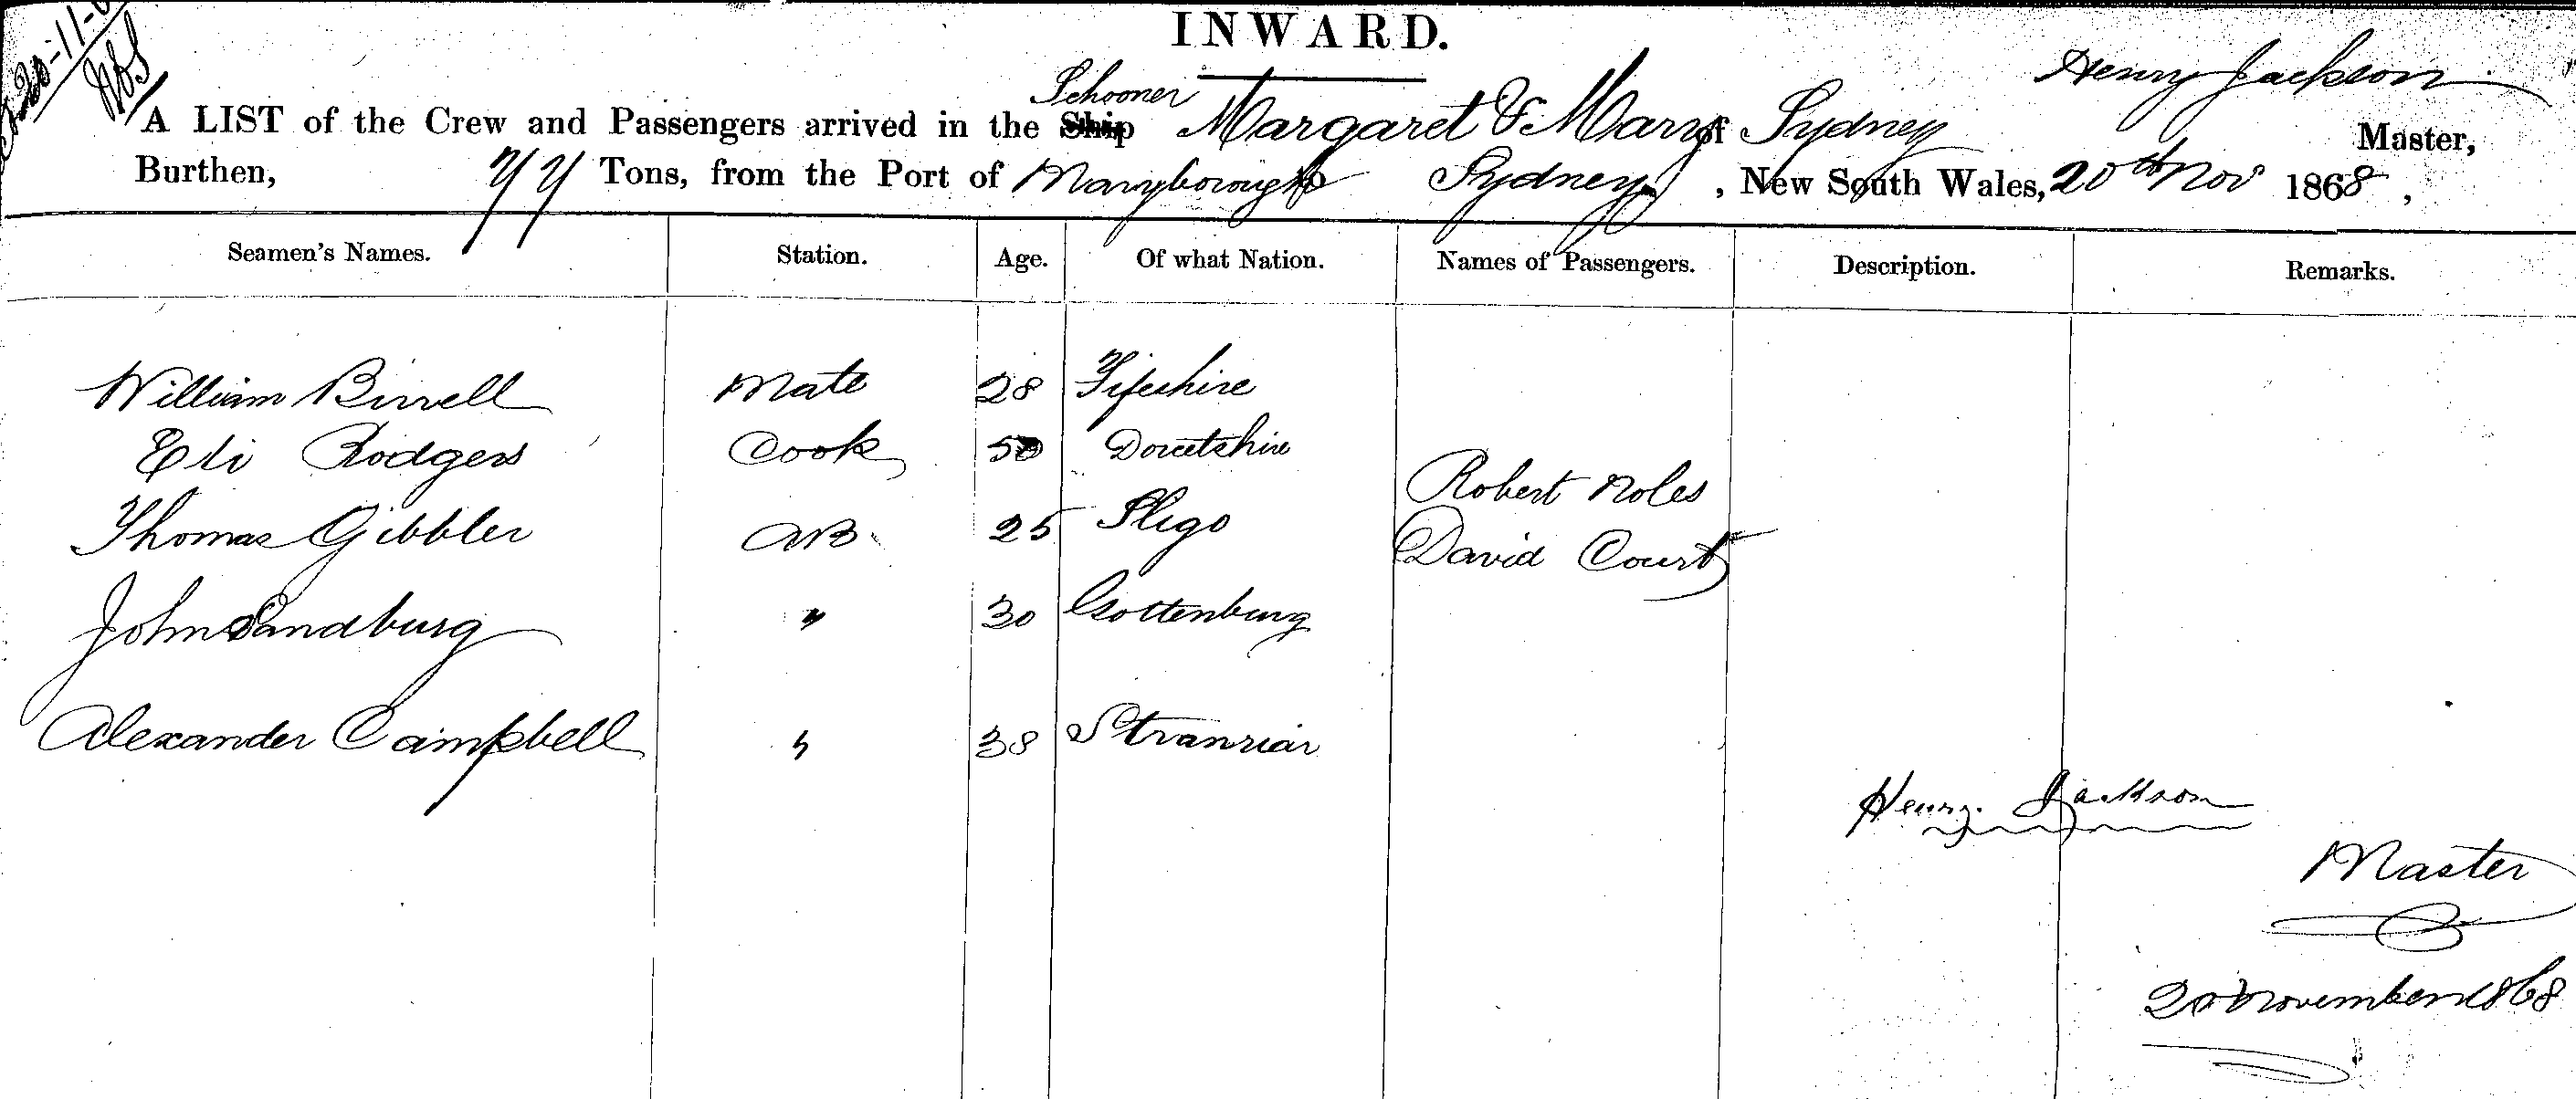 INWARD.
20-11-
Schooner
Henry Jackson
A LIST of the Crew and Passengers arrived in the Ship Margaret & Mary of Sydney Master,
Burthen, 77 Tons, from the Port of Maryborough to Sydney, New South Wales, 20th Nov 1868,
Seamen's Names. Station. Age. Of what Nation. Names of Passengers. Description. Remarks.
William Birrell Mate 28 Fifeshire
Eli Rodgers Cook 50 Dorcetshire
Robert Noles
Thomas Gibbler AB 25 Sligo
David Court
John Sandburg " 30 Gottenburg
Alexander Campbell " 38 Stranriar
Henry Jackson
Master
20 November 1868